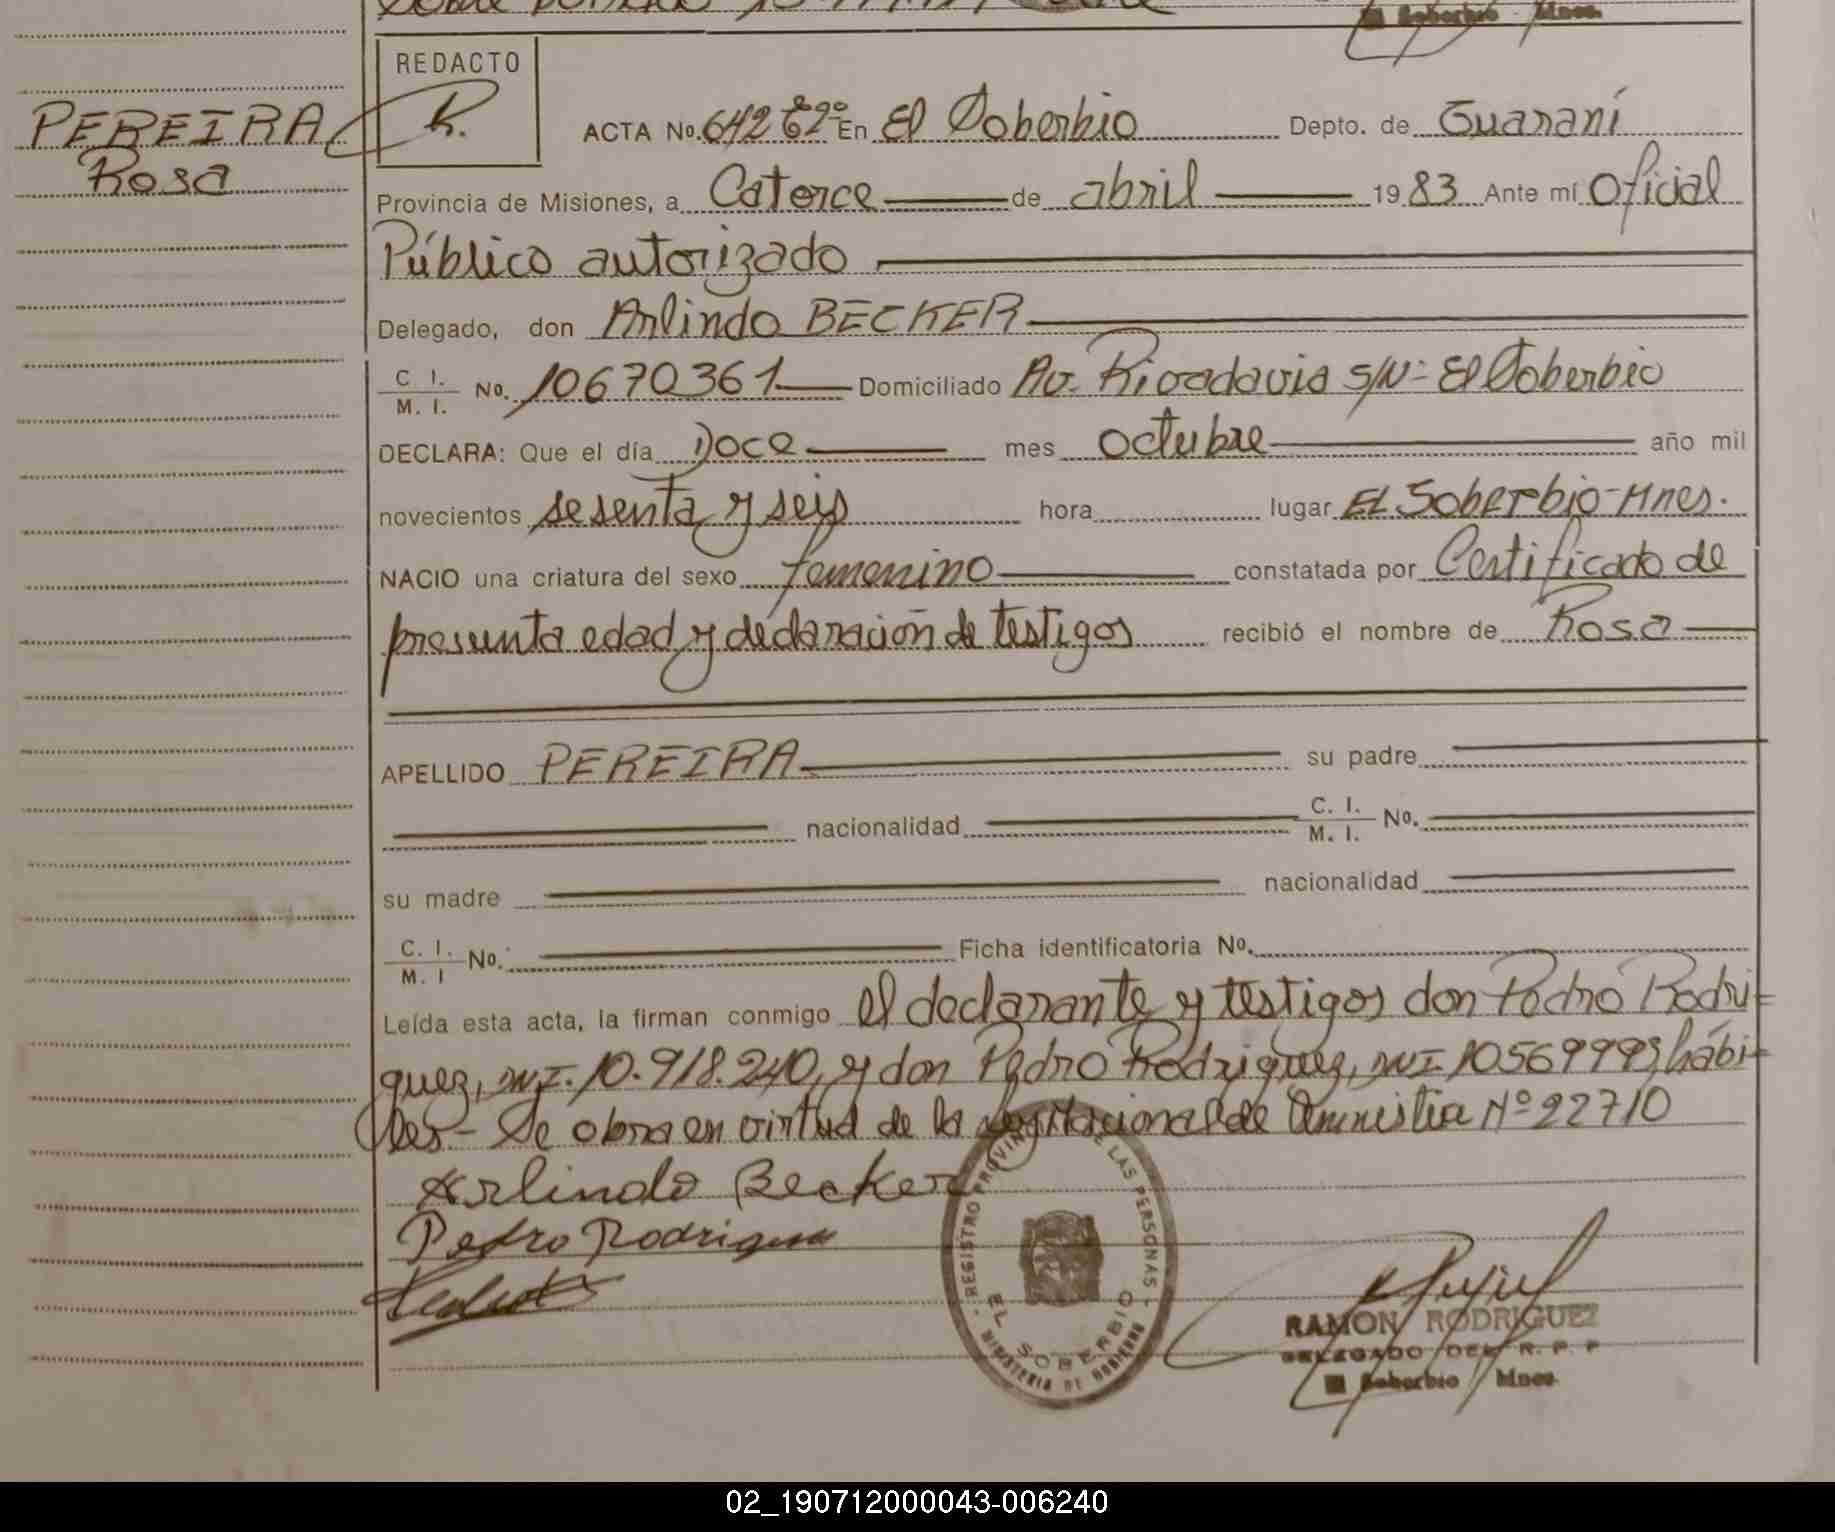 REDACTO
PEREIRA
Rosa
ACTA No. 642 Eº2º En El Soberbio Depto. de Guaraní
Provincia de Misiones, a Catorce de abril 1983 Ante mí Oficial
Público autorizado
Delegado, don Arlindo BECKER
C. I. M. I. No. 10670361 Domiciliado Av. Rivadavia S/Nº El Soberbio
DECLARA: Que el día Doce mes octubre año mil
novecientos sesenta y seis hora lugar EL Soberbio-Mnes.
NACIO una criatura del sexo femenino constatada por Certificado de
presunta edad y declaración de testigos recibió el nombre de Rosa
APELLIDO PEREIRA su padre
nacionalidad C. I. M. I. No.
su madre nacionalidad
C. I. M. I No. Ficha identificatoria No.
Leída esta acta, la firman conmigo el declarante y testigos don Pedro Rodri=
guez, M.I. 10.918.240, y don Pedro Rodriguez, M.I 10569993 hábi=
les - Se obra en virtud de la ley Nacional de Amnistia Nº 22710
Arlindo Becker
Pedro Rodriguez
REGISTRO PROVINCIAL DE LAS PERSONAS
EL SOBERBIO
MINISTERIO DE GOBIERNO
RAMON RODRIGUEZ
DELEGADO DEL R. P. P
El Soberbio Mnes
02_190712000043-006240